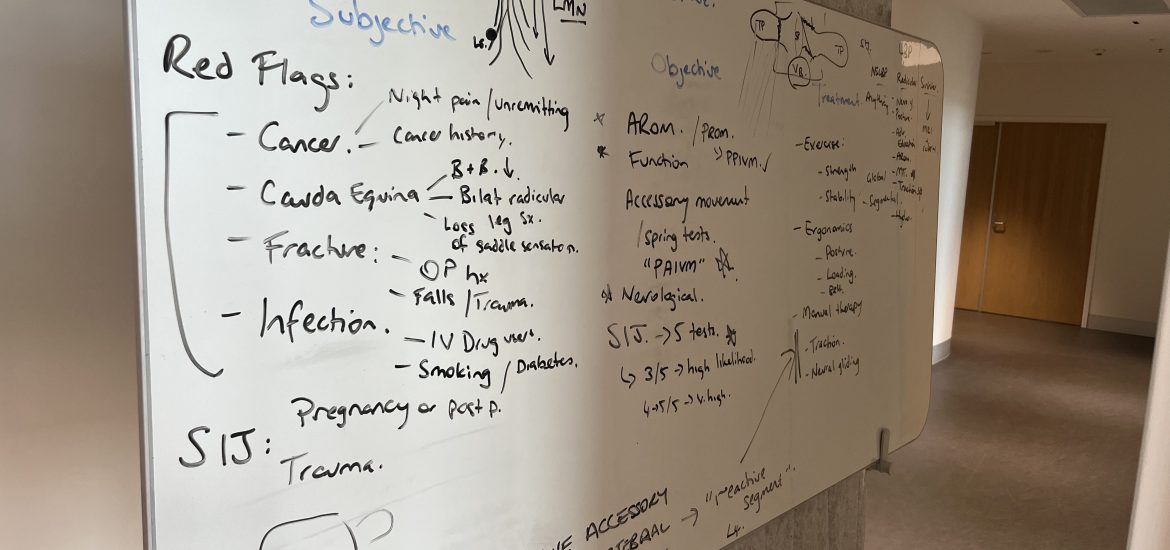 Subjective
LMN
Red Flags:
- Cancer.
Night pain / unremitting
- Cancer history.
- Cauda Equina
B + B. ↓
- Bilat radicular
leg sx.
Loss of saddle sensation.
- Fracture:
- OP hx
- Falls / Trauma.
- Infection.
- IV Drug users.
- Smoking / Diabetes.
SIJ:
Pregnancy or post p.
Trauma.
Objective
AROM. / PROM.
↳ PPIVM.
* Function
Accessory movement
/ spring tests.
"PAIVM"
Neurological.
SIJ. → 5 tests.
↳ 3/5 → high likelihood.
4→5/5 → v. high.
TP
SP
TP
VB
Treatment.
- Exercise:
- Strength
Global
- Stability
- Segmental
- Ergonomics
- Posture
- Loading.
- Manual therapy
- Traction.
- Neural gliding
LBP
Radicular
Traction
ACCESSORY
→ "reactive
segment".
L4.